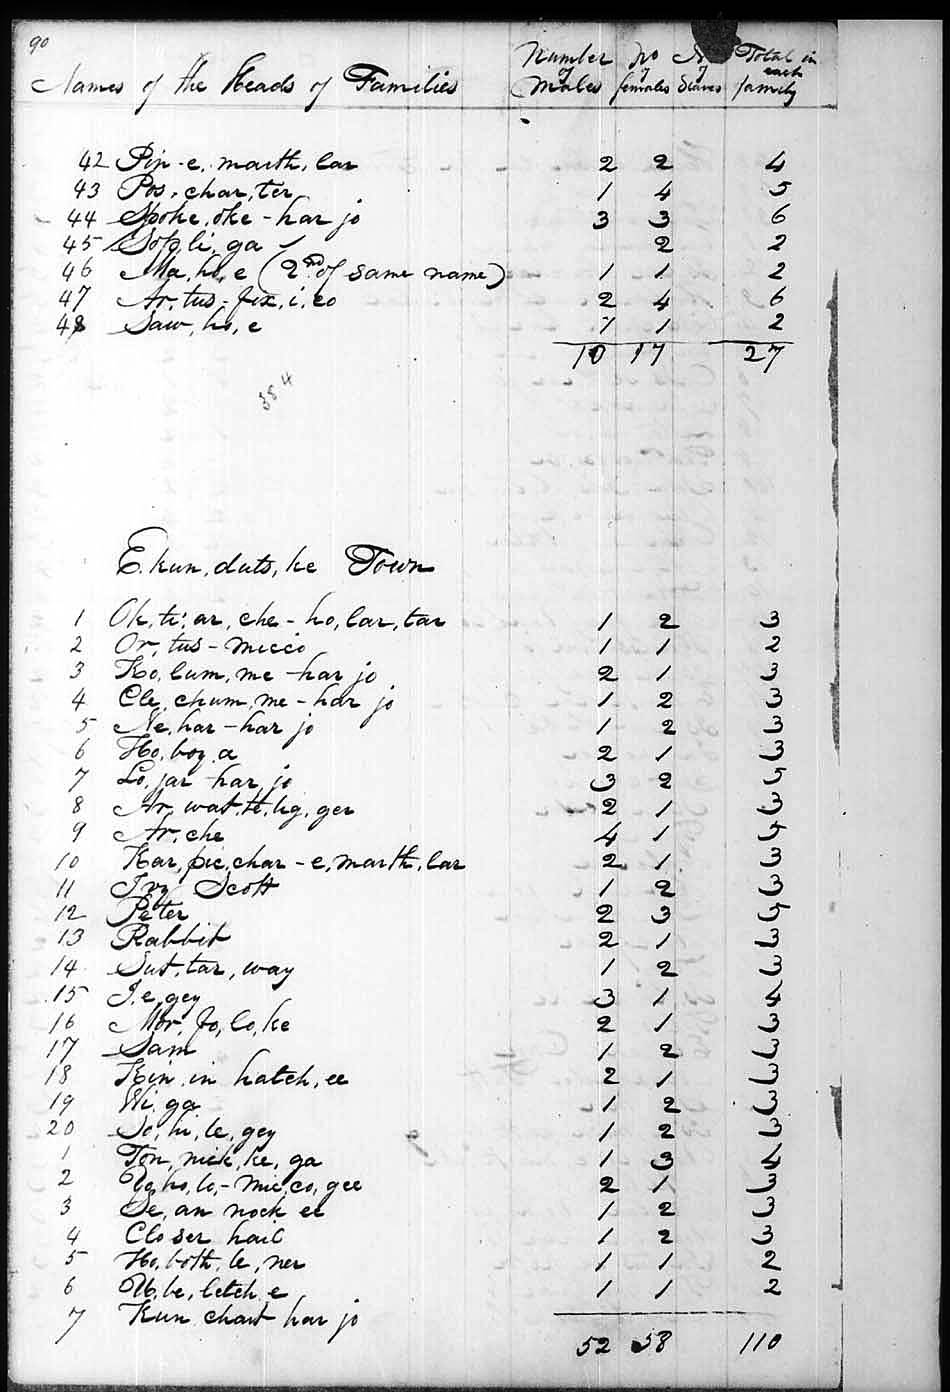 90
Names of the Heads of Families Number of Males No of females No of Slaves Total in each family
42 Pin-e, marth, lar 2 2 4
43 Pos, char, ter 1 4 5
44 Spoke, oke-har jo 3 3 6
45 Sofoli, ga 2 2
46 Ma, ho, e (2nd of same name) 1 1 2
47 Ar, tus-fix, i, co 2 4 6
48 Saw, ho, e 1 1 2
10 17 27
384
E. kun, duts, ke Town
1 Ok, ti, ar, che-ho, lar, tar 1 2 3
2 Or, tus-micco 1 1 2
3 Ko, lum, me-har jo 2 1 3
4 Cle, chum, me-har jo 1 2 3
5 Ne, har-har jo 1 2 3
6 Ho, boy, a 2 1 3
7 Lo, jar-har, jo 3 2 5
8 Ar, wat, te, lig, ger 2 1 3
9 Ar, che 4 1 5
10 Kar, pic, char-e, marth, lar 2 1 3
11 Ivy Scott 1 2 3
12 Peter 2 3 5
13 Rabbit 2 1 3
14 Sut, tar, way 1 2 3
15 J. e, gey 3 1 4
16 Mor, fo, lo, ke 2 1 3
17 Sam 1 2 3
18 Kin, in hatch, ee 2 1 3
19 Wi, ga 1 2 3
20 So, hi, le, gey 1 2 3
1 Ton, nick, ke, ga 1 3 4
2 Yo, ho, lo,-mic, co, gee 2 1 3
3 Se, an nock ee 1 2 3
4 Closer hail 1 2 3
5 Ho, both, le, ner 1 1 2
6 U, be, letch, e 1 1 2
7 Kun chart har jo
52 58 110